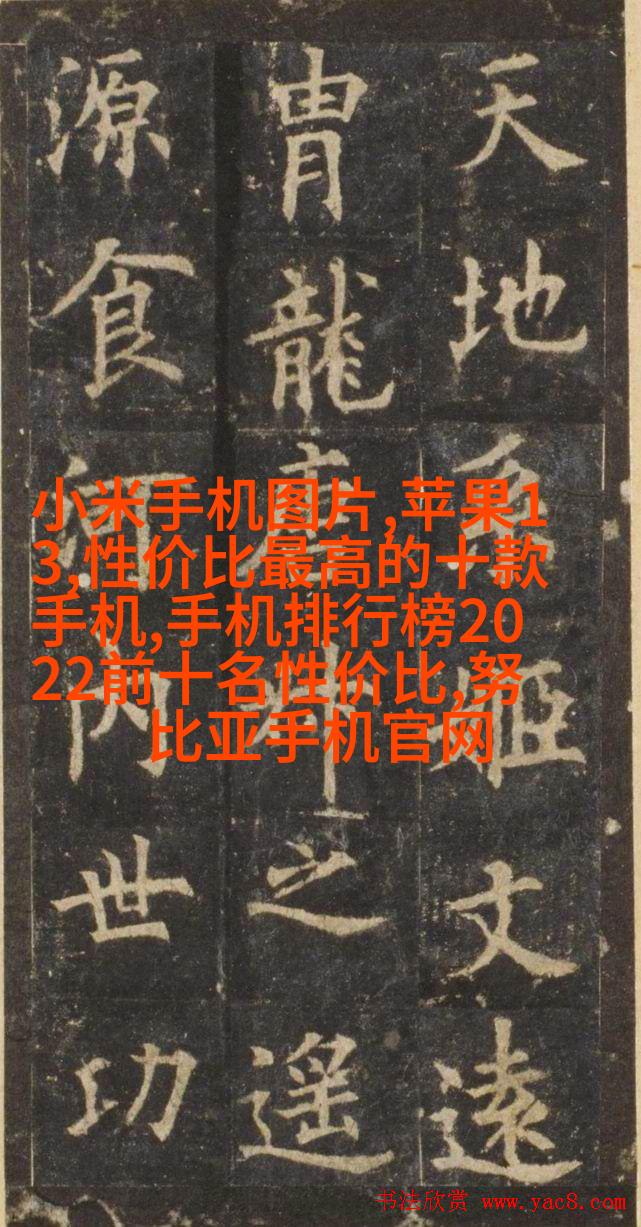 天地姬文遠
胄龍之遥
源食河内世功
小米手机图片,苹果1
3,性价比最高的十款
手机,手机排行榜20
22前十名性价比,努
比亚手机官网
书法欣赏 www.yac8.com